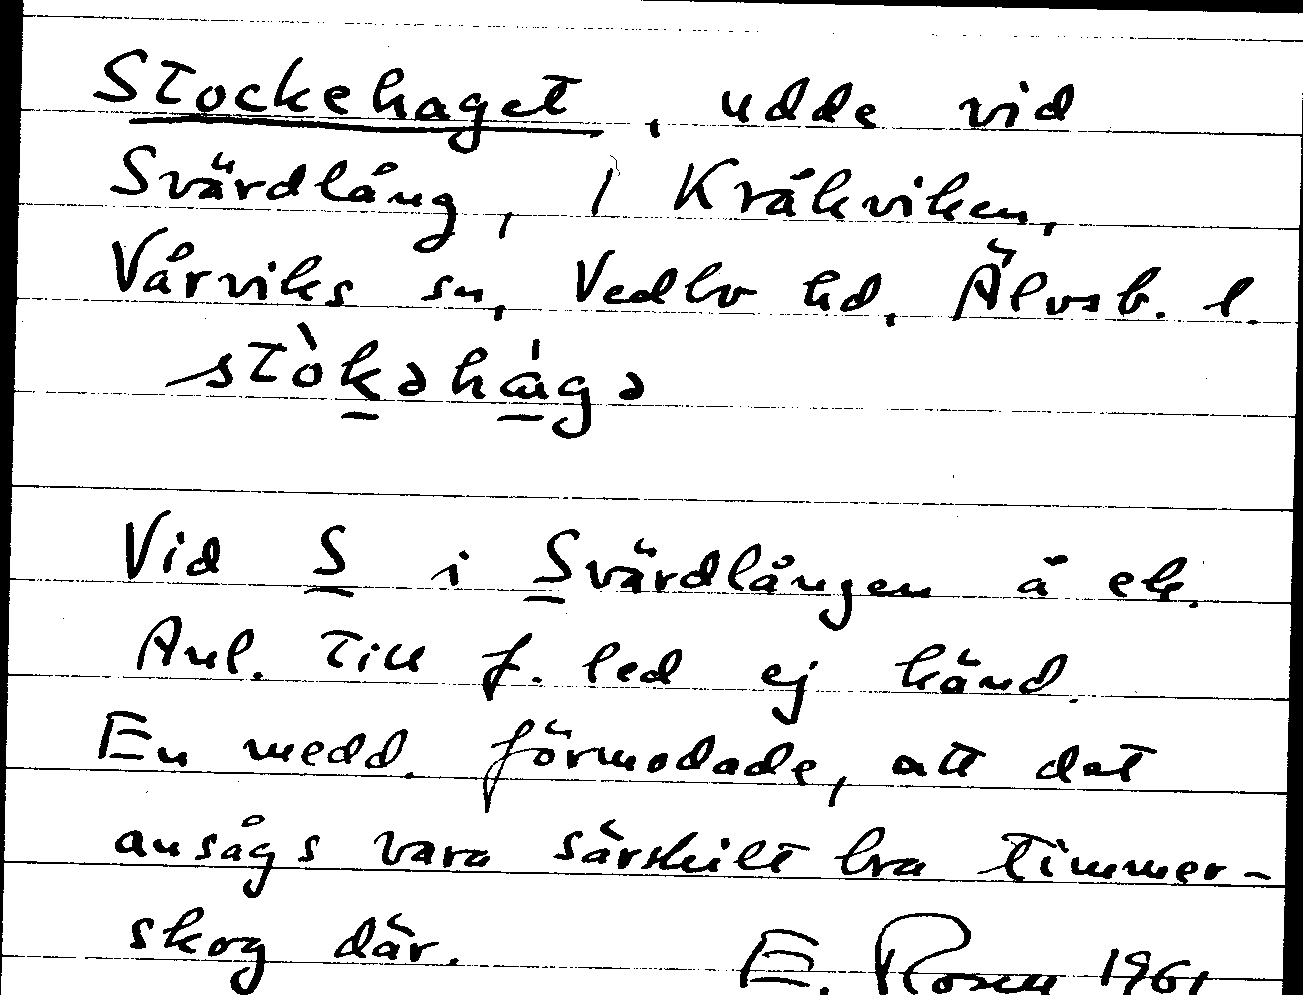 Stockehaget, udde vid
Svärdlång, i Kräkviken,
Vårviks sn, Vedbo hd, Älvsb. l.
stòkəhágə
Vid S i Svärdlången ä ek.
Anl. till f. led ej känd.
En medd. förmodade, att det
ansågs vara särskilt bra timmer-
skog där. E. Rosen 1961